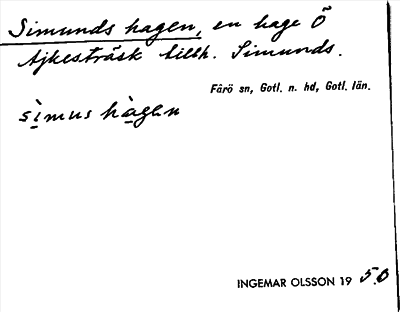 Simunds hagen, en hage Ö
Ajkesträsk tillh. Simunds.
Fårö sn, Gotl. n. hd, Gotl. län.
sìmus hàgen
INGEMAR OLSSON 19 50